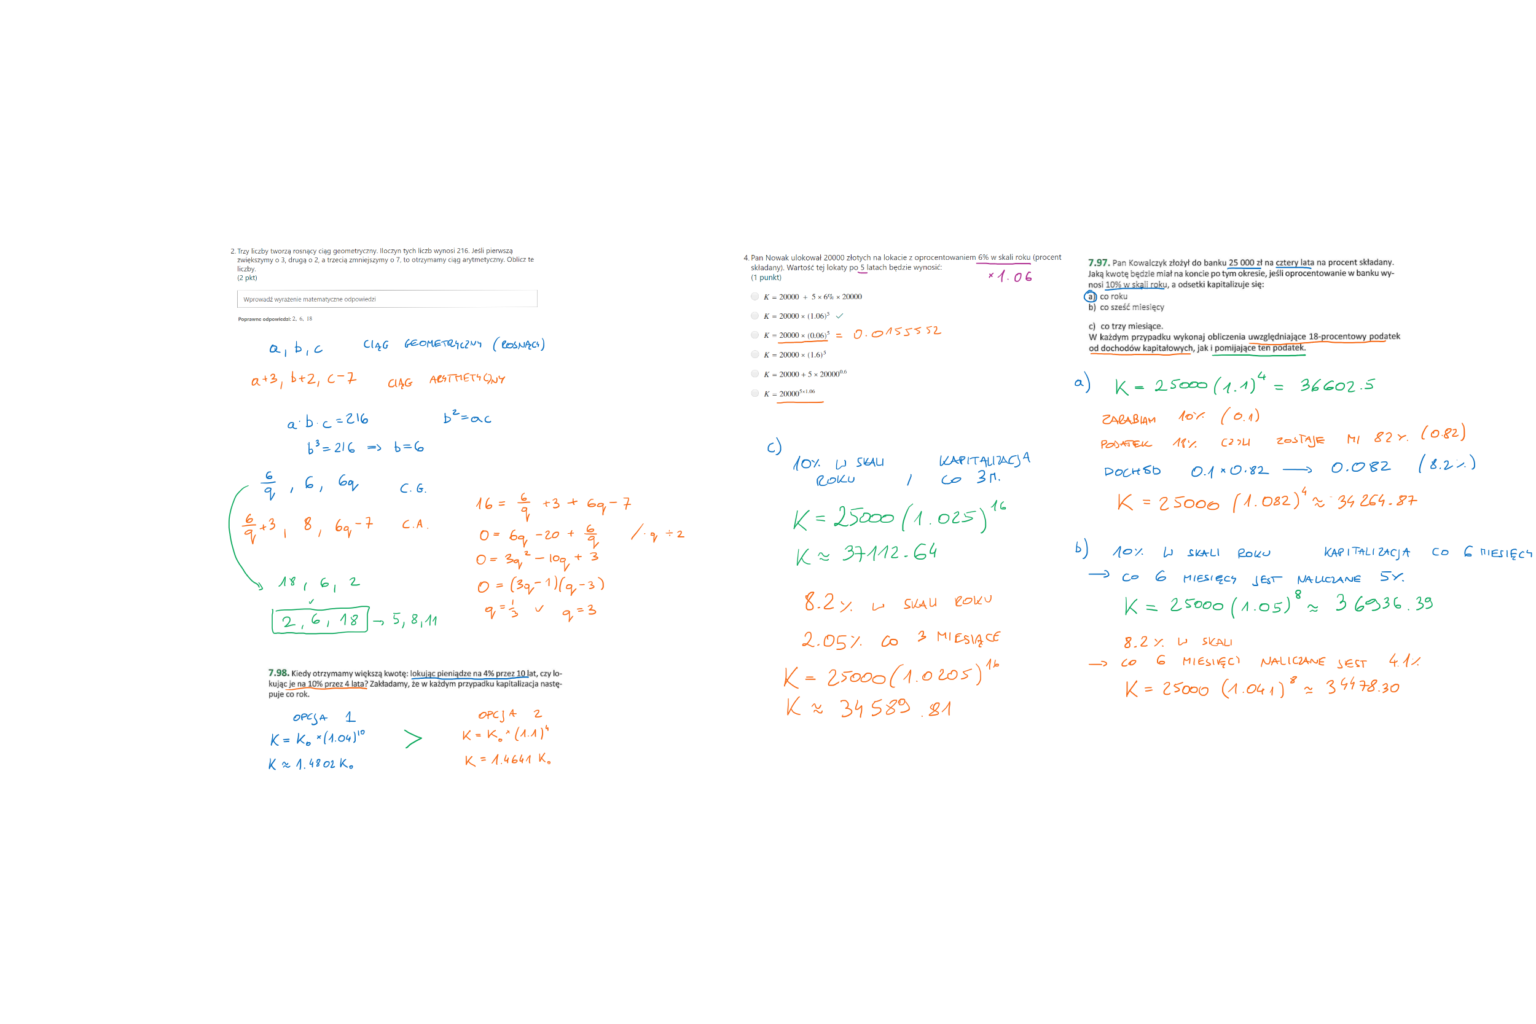 2. Trzy liczby tworzą rosnący ciąg geometryczny. Iloczyn tych liczb wynosi 216. Jeśli pierwszą
zwiększymy o 3, drugą o 2, a trzecią zmniejszymy o 7, to otrzymamy ciąg arytmetyczny. Oblicz te
liczby.
(2 pkt)
Wprowadź wyrażenie matematyczne odpowiedzi
Poprawne odpowiedzi: 2, 6, 18
a, b, c CIĄG GEOMETRYCZNY (ROSNĄCY)
a+3, b+2, c-7 CIĄG ARYTMETYCZNY
a·b·c = 216 b²=ac
b³=216 => b=6
6/q, 6, 6q C.G.
6/q+3, 8, 6q-7 C.A.
16 = 6/q +3 + 6q - 7
0 = 6q - 20 + 6/q /·q ÷2
0 = 3q² - 10q + 3
0 = (3q-1)(q-3)
q = 1/3 ✓ q=3
18, 6, 2
2, 6, 18 → 5, 8, 11
7.98. Kiedy otrzymamy większą kwotę: lokując pieniądze na 4% przez 10 lat, czy lo-
kując je na 10% przez 4 lata? Zakładamy, że w każdym przypadku kapitalizacja nastę-
puje co rok.
OPCJA 1
K = K₀ × (1.04)¹⁰
K ≈ 1.4802 K₀
>
OPCJA 2
K = K₀ × (1.1)⁴
K = 1.4641 K₀
4. Pan Nowak ulokował 20000 złotych na lokacie z oprocentowaniem 6% w skali roku (procent
składany). Wartość tej lokaty po 5 latach będzie wynosić:
(1 punkt)
× 1.06
K = 20000 + 5 × 6% × 20000
K = 20000 × (1.06)⁵ ✓
K = 20000 × (0.06)⁵ = 0.0155552
K = 20000 × (1.6)⁵
K = 20000 + 5 × 20000⁰·⁶
K = 20000⁵ˣ¹·⁰⁶
c) 10% W SKALI ROKU, KAPITALIZACJA CO 3 M.
K = 25000 (1.025)¹⁶
K ≈ 37112.64
8.2% W SKALI ROKU
2.05% CO 3 MIESIĄCE
K = 25000 (1.0205)¹⁶
K ≈ 34589.81
7.97. Pan Kowalczyk złożył do banku 25 000 zł na cztery lata na procent składany.
Jaką kwotę będzie miał na koncie po tym okresie, jeśli oprocentowanie w banku wy-
nosi 10% w skali roku, a odsetki kapitalizuje się:
a) co roku
b) co sześć miesięcy
c) co trzy miesiące.
W każdym przypadku wykonaj obliczenia uwzględniające 18-procentowy podatek
od dochodów kapitałowych, jak i pomijające ten podatek.
a) K = 25000 (1.1)⁴ = 36602.5
ZARABIAM 10% (0.1)
PODATEK 18% CZYLI ZOSTAJE MI 82% (0.82)
DOCHÓD 0.1 × 0.82 → 0.082 (8.2%)
K = 25000 (1.082)⁴ ≈ 34264.87
b) 10% W SKALI ROKU KAPITALIZACJA CO 6 MIESIĘCY
→ CO 6 MIESIĘCY JEST NALICZANE 5%.
K = 25000 (1.05)⁸ ≈ 36936.39
8.2% W SKALI
→ CO 6 MIESIĘCY NALICZANE JEST 4.1%
K = 25000 (1.041)⁸ ≈ 34478.30